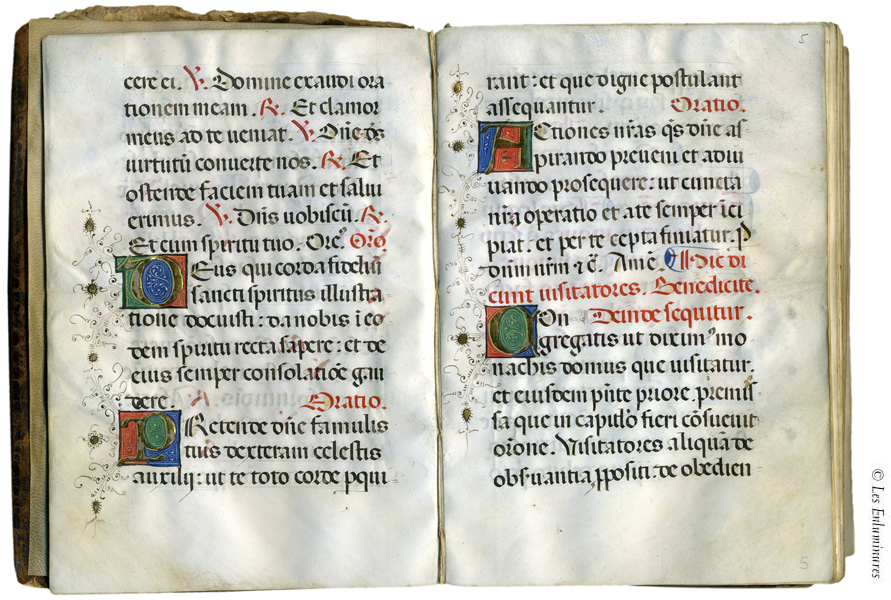 cere ei. V. Domine exaudi ora
tionem meam. R. Et clamor
meus ad te ueniat. V. Dñe ds̃
uirtutũ conuerte nos. R. Et
ostende faciem tuam et salui
erimus. V. Dñs uobiscũ. R.
Et cum spiritu tuo. Ore᷒. Orõ.
Deus qui corda fideliũ
sancti spiritus illustra
tione docuisti: da nobis ĩ eo
dem spiritu recta sapere: et de
eius semper consolatiõe gau
dere. Oratio.
Pretende dñe famulis
tuis dexteram celestis
auxilij: ut te toto corde pqui
5
rant: et que digne postulant
assequantur. Oratio.
Actiones nr̃as qs̃ dñe as
pirando preueni et adiu
uando prosequere: ut cuncta
nr̃a operatio et a te semper ĩci
piat: et per te cepta finiatur. P
dñm nr̃m ⁊ c̃. Amẽ. ¶ Hic di
cunt uisitatores. Benedicite.
Con Deinde sequitur.
gregatis ut dixim᷒ mo
nachis domus que uisitatur.
et eiusdem pñte priore. premis
sa que in capitulo fieri cõsueuit
orõne. Visitatores aliqua de
obs̃uantia ppositi: de obedien
5
© Les Enluminures